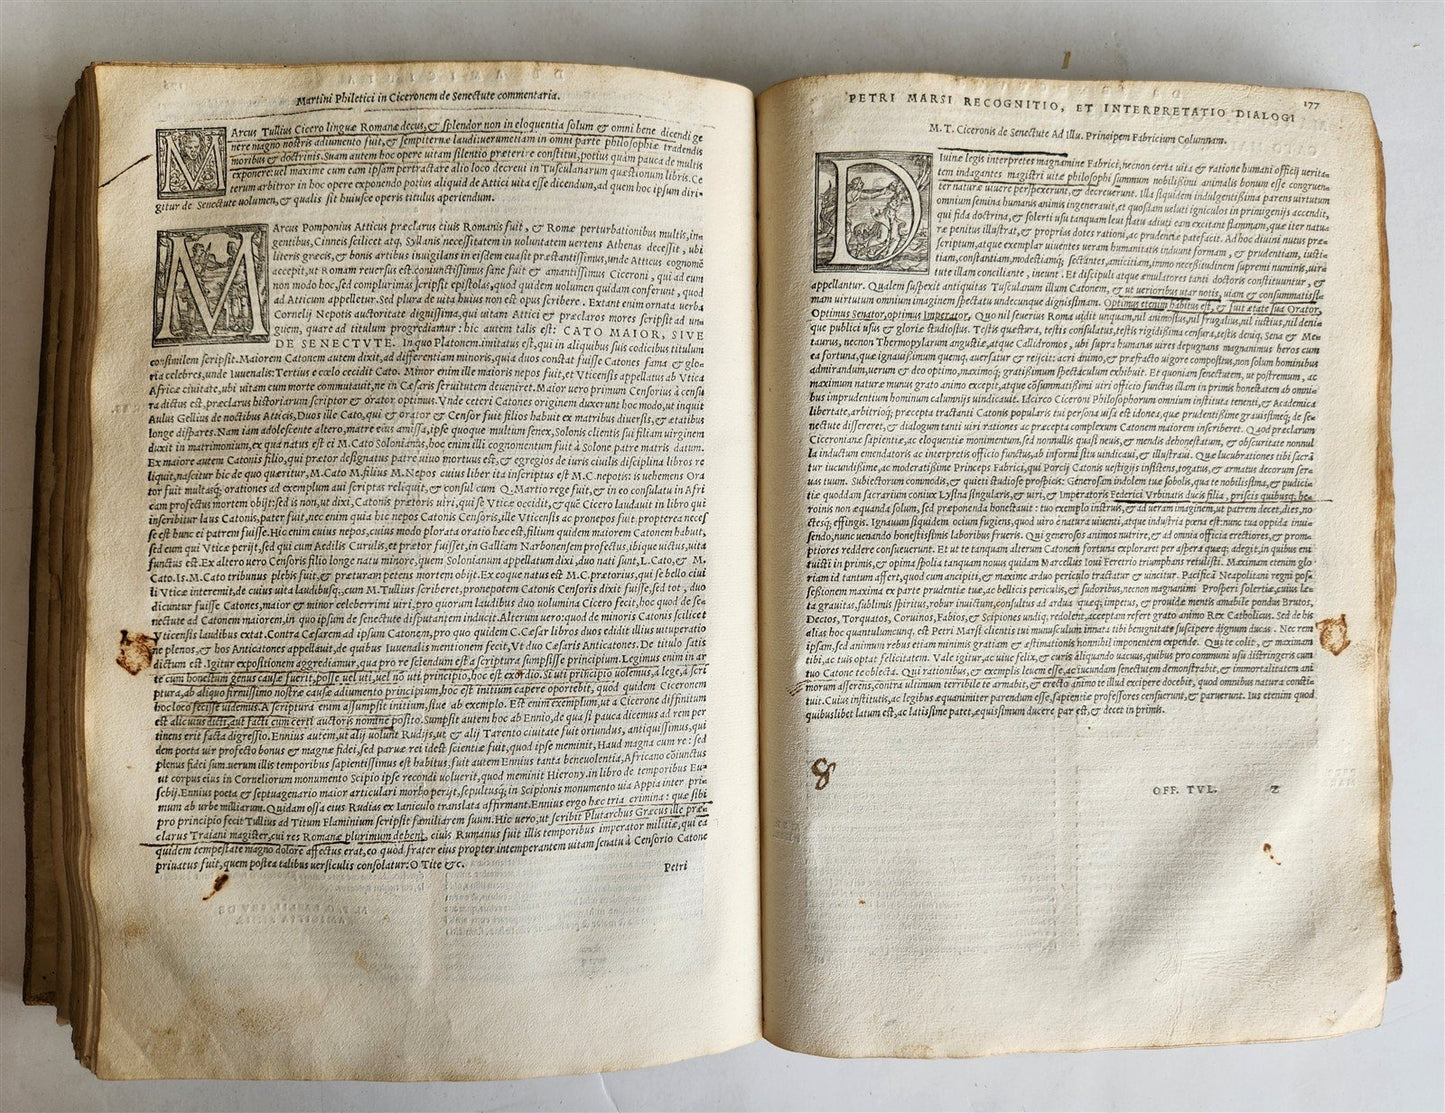 Martini Philetici in Ciceronem de Senectute commentaria.
MArcus Tullius Cicero linguæ Romanæ decus, & splendor non in eloquentia solum & omni bene dicendi ge
nere magno nostris adiumento fuit, & sempiternæ laudi: verumetiam in omni parte philosophiæ tradendis
moribus & doctrinis. Suam autem hoc opere vitam silentio præterire constitui, potius quàm pauca de multis
exponere: vel maxime cum eam ipsam pertractare alio loco decreui in Tusculanarum quæstionum libris. Ce
terum arbitror in hoc opere exponendo potius aliquid de Attici vita esse dicendum, ad quem hoc ipsum diri-
gitur de Senectute volumen, & qualis sit huiusce operis titulus aperiendum.
MArcus Pomponius Atticus præclarus ciuis Romanis fuit, & Romæ perturbationibus multis, in-
gentibus, Cinneis scilicet atq; Syllanis necessitatem in voluntatem vertens Athenas decessit, ubi
literis græcis, & bonis artibus inuigilans in eisdem euasit præstantissimus, unde Atticus cognomē
accepit, ut Romam reuersus est. coniunctissimus sane fuit & amantissimus Ciceroni, qui ad eum
non modo hoc, sed complurimas scripsit epistolas, quod quidem volumen quidam conferunt, quod
ad Atticum appelletur. Sed plura de vita huius non est opus scribere. Extant enim ornata verba
Cornelij Nepotis auctoritate dignissima, qui vitam Attici & præclaros mores scripsit ad un-
guem, quare ad titulum progrediamur: hic autem talis est: CATO MAIOR, SIVE
DE SENECTVTE. In quo Platonem imitatus est, qui in aliquibus suis codicibus titulum
consimilem scripsit. Maiorem Catonem autem dixit, ad differentiam minoris, quia duos constat fuisse Catones fama & glo-
ria celebres, unde Iuuenalis: Tertius e cœlo cecidit Cato. Minor enim ille maioris nepos fuit, et Vticensis appellatus ab Vtica
Africæ ciuitate, ubi vitam cum morte commutauit, ne in Cæsaris seruitutem deueniret. Maior vero primum Censorius à censu
ra dictus est, præclarus historiarum scriptor & orator optimus. Vnde ceteri Catones originem duxerunt hoc modo, ut inquit
Aulus Gellius de noctibus Atticis, Duos ille Cato, qui & orator & Censor fuit filios habuit ex matribus diuersis, & ætatibus
longe dispares. Nam iam adolescente altero, matre eius amissa, ipse quoque multum senex, Solonis clientis sui filiam virginem
duxit in matrimonium, ex qua natus est ei M. Cato Solonianus, hoc enim illi cognomentum fuit à Solone patre matris datum.
Ex maiore autem Catonis filio, qui prætor designatus patre viuo mortuus est, & egregios de iuris ciuilis disciplina libros re
liquit, nascitur hic de quo queritur, M. Cato M. filius M. Nepos cuius liber ita inscriptus est M. C. nepotis: is vehemens Ora
tor fuit multasq; orationes ad exemplum aui scriptas reliquit, & consul cum Q. Martio rege fuit, & in eo consulatu in Afri
cam profectus mortem obijt: sed is non, ut dixi, Catonis prætoris viri, qui se Vticæ occidit, & quē Cicero laudauit in libro qui
inscribitur laus Catonis, pater fuit, nec enim quia hic nepos Catonis Censoris, ille Vticensis ac pronepos fuit. propterea necess
se est hunc ei patrem fuisse. Hic enim cuius nepos, cuius modo plorata oratio hæc est, filium quidem maiorem Catonem habuit,
sed eum qui Vticæ perijt, sed qui cum Aedilis Curulis, et prætor fuisset, in Galliam Narbonensem profectus, ibique uictus, vita
functus est. Ex altero vero Censoris filio longe natu minore, quem Solonianum appellatum dixi, duo nati sunt, L. Cato, & M.
Cato. Is. M. Cato tribunus plebis fuit, & præturam petens mortem obijt. Ex eo que natus est M. C. prætorius, qui se bello ciui
li Vticæ interemit, de cuius vita laudibusq;, cum M. Tullius scriberet, pronepotem Catonis Censoris dixit fuisse, sed tot, duo
dicuntur fuisse Catones, maior & minor celeberrimi viri, pro quorum laudibus duo volumina Cicero fecit, hoc quod de se-
nectute ad Catonem maiorem, in quo ipsum de senectute disputantem inducit. Alterum vero: quod de minoris Catonis scilicet
Vticensis laudibus extat. Contra Cæsarem ad ipsum Catonem, pro quo quidem C. Cæsar libros duos edidit illius vituperatio
ne plenos, & hos Anticatones appellauit, de quibus Iuuenalis mentionem fecit, Vt duo Cæsaris Anticatones. De titulo satis
dictum est. Igitur expositionem aggrediamur, qua pro re sciendum est à scriptura sumpsisse principium. Legimus enim in ar
te cum honestum genus causæ fuerit, posse vel uti, vel nō uti principio, hoc est exordio. Si uti principio volemus, a lege, a scri
ptura, ab aliquo firmissimo nostræ causæ adiumento principium, hoc est initium capere oportebit, quod quidem Ciceronem
hoc loco fecisse videmus. A scriptura enim assumpsit initium, siue ab exemplo. Est enim exemplum, ut a Cicerone diffinitum
est alicuius dicti, aut facti cum certi auctoris nomine posito. Sumpsit autem hoc ab Ennio, de qua si pauca dicemus ad rem per
tinens erit facta digressio. Ennius autem, ut alij volunt Rudijs, ut & alij Tarento ciuitate fuit oriundus, antiquissimus, qui
dem poeta vir profecto bonus & magnæ fidei, sed paruæ rei idest scientiæ fuit, quod ipse meminit, Haud magna cum re: sed
plenus fidei sum. verum illis temporibus sapientissimus est habitus, fuit autem Ennius tanta beneuolentia, Africano cōiunctus
ut corpus eius in Corneliorum monumento Scipio ipse recondi voluerit, quod meminit Hierony. in libro de temporibus Eu-
sebij. Ennius poeta & septuagenario maior articulari morbo perijt, sepultusq; in Scipionis monumento via Appia inter pri-
mum ab urbe milliarium. Quidam ossa eius Rudias ex Ianiculo translata affirmant. Ennius ergo hæc tria crimina: quæ sibi
pro principio fecit Tullius ad Titum Flaminium scripsit familiarem suum. Hic vero, ut scribit Plutarchus Græcus ille præ-
clarus Traiani magister, cui res Romanæ plurimum debent, ciuis Romanus fuit illis temporibus imperator militiæ, qui ea
quidem tempestate magno dolore affectus erat, eo quòd frater eius propter intemperantem vitam senatu à Censorio Catone
priuatus fuit, quem postea talibus versiculis consolatur: O Tite &c.
Petri
177
PETRI MARSI RECOGNITIO, ET INTERPRETATIO DIALOGI
M. T. Ciceronis de Senectute Ad Illu. Principem Fabricium Columnam.
DIuinæ legis interpretes magnanime Fabrici, necnon certa vita & ratione humani officij verita-
tem indagantes magistri vitæ philosophi summum nobilissimi animalis bonum esse congruen-
ter naturæ viuere perspexerunt, & decreuerunt. Illa siquidem indulgentissima parens virtutum
omnium semina humanis animis ingenerauit, et quosdam veluti igniculos in primigenijs accendit,
qui fida doctrina, & solerti usu tanquam leui flatu adiuti eam excitant flammam, quæ iter natu-
ræ penitus illustrat, & proprias dotes rationi, ac prudentiæ patefacit. Ad hoc diuini nutus præ-
scriptum, atque exemplar viuentes veram humanitatis induunt formam, & prudentiam, iusti-
tiam, constantiam, modestiamq; sectantes, amicitiam, immo necessitudinem supremi numinis, vir-
tute illam conciliante, ineunt. Et discipuli atque æmulatores tanti doctoris constituuntur, &
appellantur. Qualem suspexit antiquitas Tusculanum illum Catonem, & ut verioribus utar notis, viam & consummatissi-
mam virtutum omnium imaginem spectatu undecunque dignissimam. Optimus etenim habitus est, & sui ætate sua Orator,
Optimus Senator, optimus Imperator. Quo nil seuerius Roma vidit unquam, nil animosius, nil frugalius, nil iustius, nil deni-
que publici usus & gloriæ studiosius. Testis quæstura, testis consulatus, testis rigidissima censura, testis denuq; Sena & Me-
taurus, necnon Thermopylarum angustiæ, atque Callidromos, ubi supra humanas vires depugnans magnanimus heros cum
ea fortuna, quæ ignauissimum quenq; auersatur & reijcit: acri animo, & præfracto vigore compositus, non solum hominibus
admirandum, verum & deo optimo, maximoq; gratissimum spectaculum exhibuit. Et quoniam senectutem, ut postremum, ac
maximum naturæ munus grato animo excepit, atque cōsummatissimi viri officio functus illam in primis honestatem ab omni-
bus imprudentium hominum calumnijs vindicauit. Idcirco Ciceroni Philosophorum omnium instituta tenenti, & Academica
libertate, arbitrioq; præcepta tractanti Catonis popularis tui persona visa est idonea, quæ prudentissime grauissimeq; de se-
nectute dissereret, & dialogum tanti viri rationes ac præcepta complexum Catonem maiorem inscriberet. Quod præclarum
Ciceronianæ sapientiæ, ac eloquentiæ monimentum, sed nonnullis quasi neuis, & mendis dehonestatum, & obscuritate nonnul
la inductum emendatoris ac interpretis officio functus, ab informi situ vindicaui, & illustraui. Quæ lucubrationes tibi sacrā
tur iucundissime, ac moderatissime Princeps Fabrici, qui Porcij Catonis vestigijs insistens, togatus, & armatus decorum ser-
uas tuum. Subiectorum commodis, & quieti studiose prospicis: Generosam indolem tuæ sobolis, qua te nobilitas, & pudici-
tiæ quoddam sacrarium coniux Lysina singularis, & viri, & Imperatoris Federici Vrbinatis ducis filia, priscis quibusq; he-
roinis non æquanda solum, sed præponenda honestauit: tuo exemplo instruis, & ad veram imaginem, ut patrem decet, dies, no-
ctesq; effingis. Ignauum siquidem ocium fugiens, quod viro è natura viuenti, atque industria pœna est: nunc tua oppida inui-
sendo, nunc venando honestissimis laboribus frueris. Qui generosos animos nutrire, & ad omnia officia erectiores, & prom-
ptiores reddere consueuerunt. Et ut te tanquam alterum Catonem fortuna exploraret per aspera quæq; adegit, in quibus eni
tuisti in primis, & opima spolia tanquam nouus quidam Marcellus Ioui Feretrio triumphans retulisti. Maximam etenim glo-
riam id tantum affert, quod cum ancipiti, & maxime arduo periculo tractatur & vincitur. Pacificā Neapolitani regni pos-
sessionem maxima ex parte prudentiæ tuæ, ac bellicis periculis, & sudoribus, necnon magnanimi Prosperi solertiæ, cuius læ-
ta grauitas, sublimis spiritus, robur inuictum, consultus ad ardua quæq; impetus, & prouidæ mentis amabile pondus Brutos,
Dectos, Torquatos, Coruinos, Fabios, & Scipiones undiq; redolent, acceptam refert grato animo Rex Catholicus. Sed de his
alias hoc quantulumcunq; est Petri Marsi clientis tui munusculum innata tibi benignitate suscipere dignum ducas. Nec rem
ipsam, sed animum rebus etiam minimis gratiam & æstimationis nonnihil imponentem expende. Qui te colit, & maximam
tibi, ac tuis optat felicitatem. Vale igitur, ac viue felix, & curis aliquando vacuus, quibus pro communi usu distringeris cum
tuo Catone te oblecta. Qui rationibus, & exemplis leuem esse, ac iucundam senectutem demonstrabit, & immortalitatem ani
morum asserens, contra ultimum terribile te armabit, & erecto animo te illud excipere docebit, quod omnibus natura consti-
tuit. Cuius institutis, ac legibus æquanimiter parendum esse, sapientiæ professores censuerunt, & paruerunt. Ius etenim quod
quibuslibet latum est, ac latissime patet, æquissimum ducere par est, & decet in primis.
8
OFF. TVL. Z